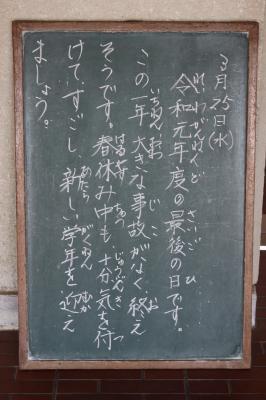 3月25日(水)
令和元年度の最後の日です。
この一年、大きな事故がなく、終え
そうです。春休み中も、十分気を付
けてすごし、新しい学年を迎え
ましょう。